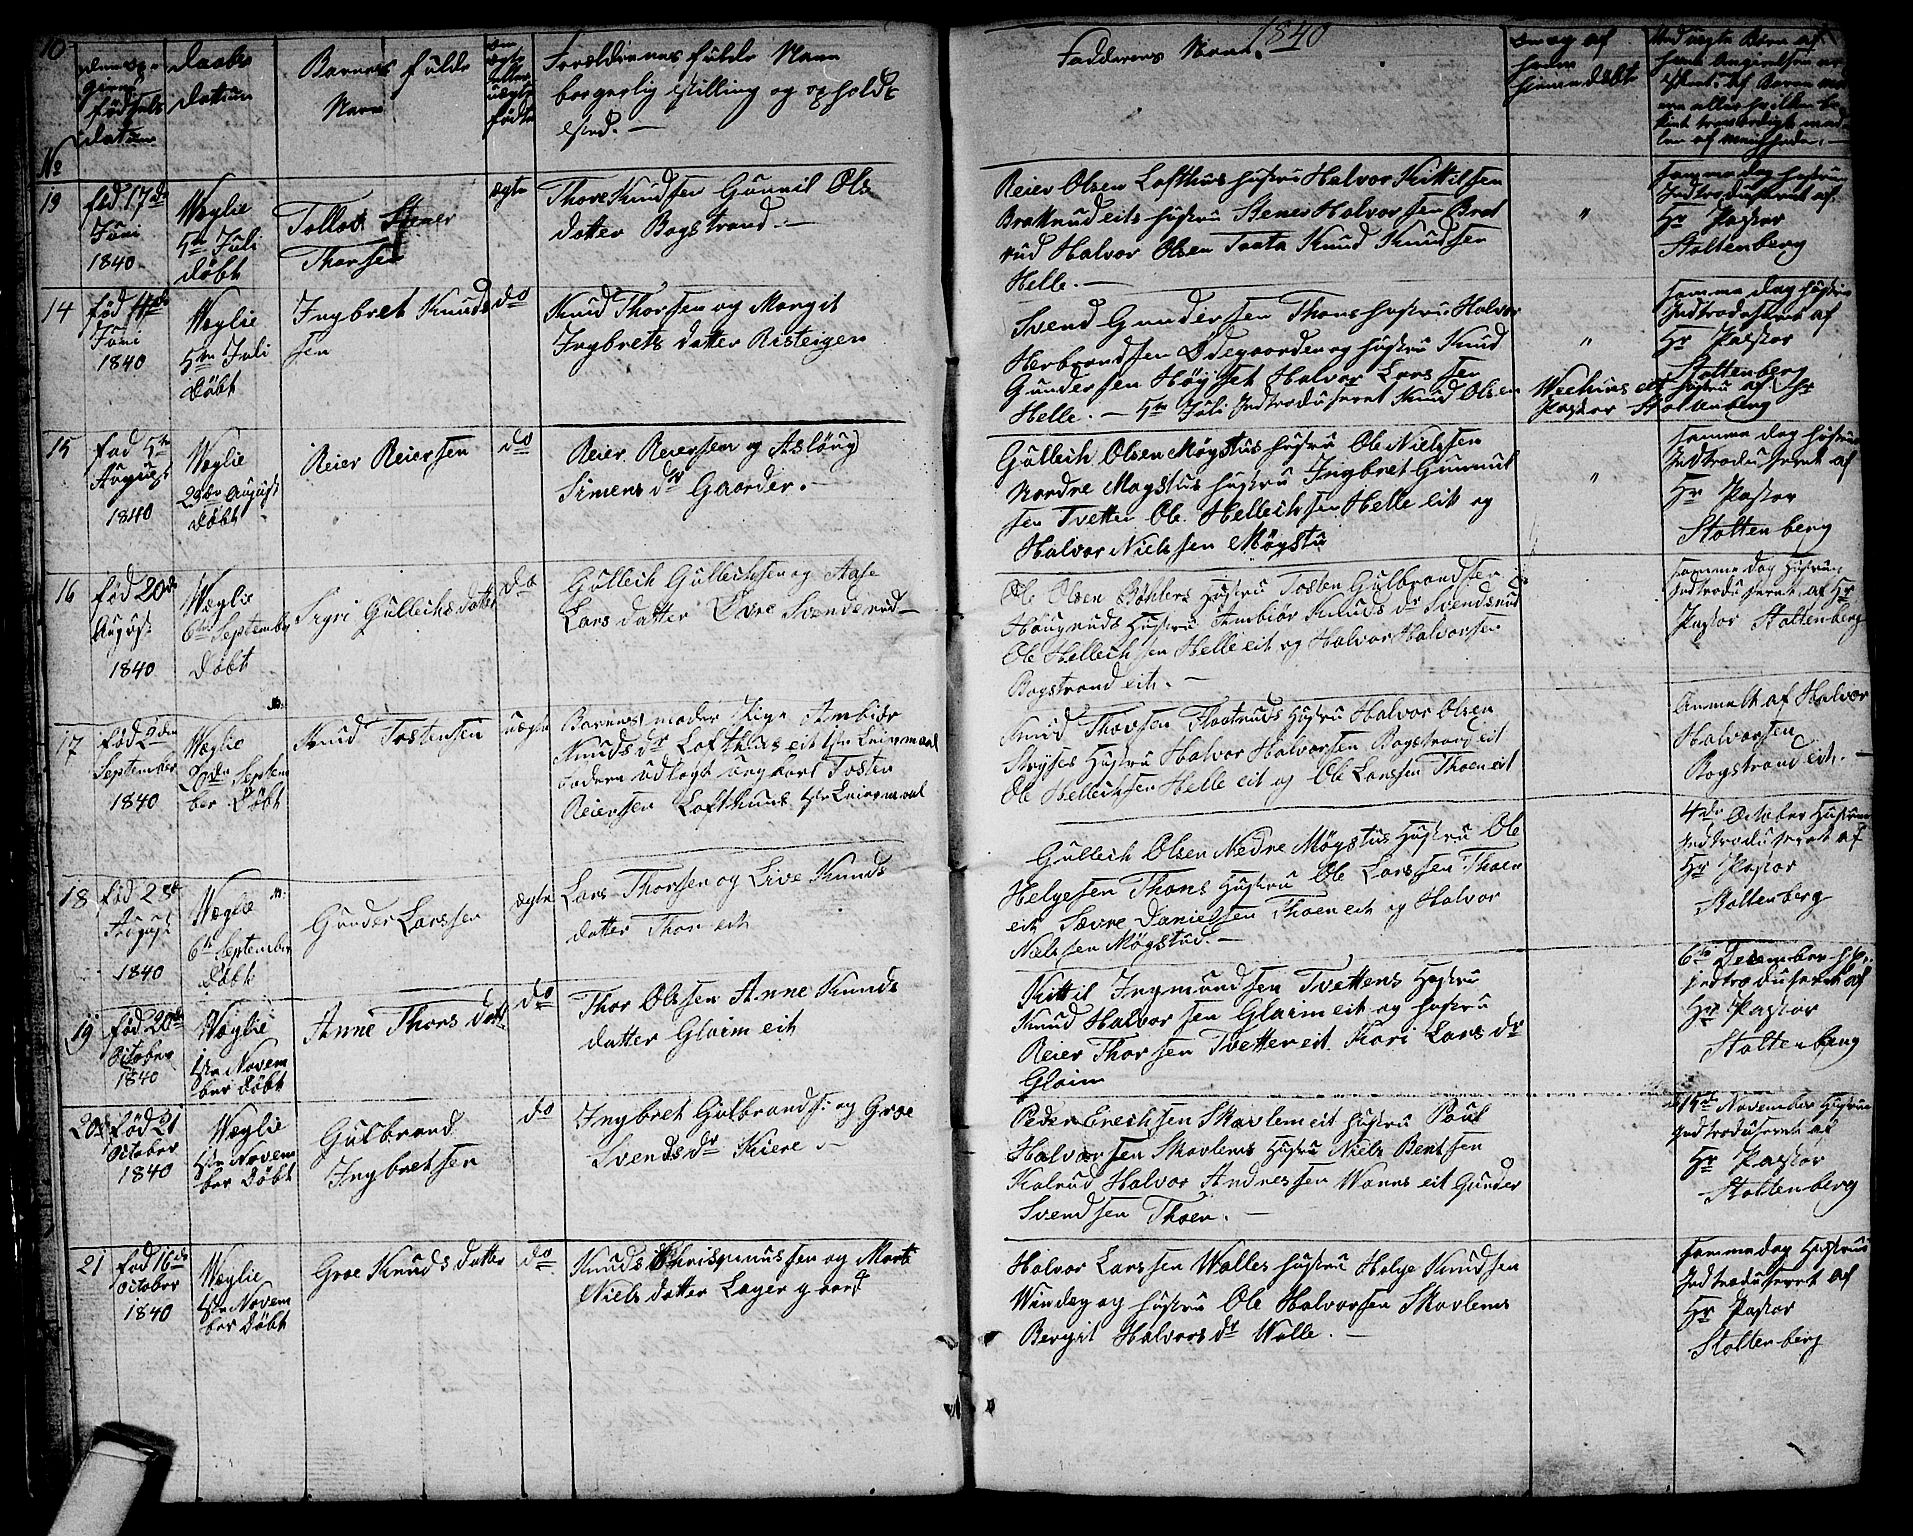 10
1840
No
den op-
givne
fødsels
datum
daabs
datum
Barnets fulde
Navn
om
ægte
eller
uægte
födte
Forældrenes fulde Navn
borgerlig stilling og opholds
sted. —
Faddernes Navn.
om og af
hvem
hiemmedöbt
13
fød 17de
Juni
1840
Wæglie
5te Juli
döbt
Tollov Stener
Thorsen
ægte
Thore Knudsen Gunnil Ols
datter Bogstrand. —
Reier Olsen Lofthus hustru Halvor Kittilsen
Braknudeits hustru Stener Halvorsen Brat
rud Halvor Olsen Toeta Knud Knudsen
Helle. —
"
samme dag hustru
Indtroduseret af
Hr Pastor
Stoltenberg
14
fød
Juni
1840
Wæglie
5te Juli
döbt
Ingbret Knud
sen
do
Knud Thorsen og Margit
Ingbrets datter Risteigen
Svend Gundersen Thons hustru Halvor
Herbrandsen Ödegaarden og hustru Knud
Gundersen Höyset Halvor Larssen
Helle. — 5te Juli Indtroduseret Knud Olsen
"
samme dag hustru
Indtroduseret af
Hr Pastor
Stoltenberg
hustru af Hr
Pastor Stoltenberg
15
fød 5te
August
1840
Wæglie
23de August
döbt
Reier Reiersen
do
Reier Reiersen og Aslöug
Simens dr Gaarder. —
Gullech Olsen Møgstus hustru Ole Nielssen
Nordre Møgstus hustru Ingbret Gunnul
sen Tvetten Ole Hellechsen Helle eit og
Halvor Nielssen Møgstu
"
samme dag hustru
Indtroduseret af
Hr Pastor
Stoltenberg
16
fød 20de
August
1840
Wæglie
6te September
döbt
Sigri Gullechs datter
do
Gullech Gullechsen og Aase
Lars datter Övre Svenderud —
Ole Olsen Böhlers hustru Tosten Gulbrandsen
Hougruds hustru Ambiör Knuds dr Svendsrud
Ole Hellechsen Helle eit og Halvor Halvorsen
Bogstrand eit. —
samme dag hustru
Indtroduseret af Hr
Pastor Stoltenberg
17
fød 2den
September
1840
Wæglie
20de Septem
ber Döbt
Knud Tostensen
uægte
Barnets moder Pige Ambiör
Knuds dr Lofthus eit 1ste Leiermaal
faderen udlagt ungkarl Tosten
Reiersen Lofthuus 1ste Leiermaal
Knud Thorsen Flaatruds hustru Halvor Olsen
Hustru Halvor Halvorsen Bogstrand eit
Ole Hellechsen Helle eit og Ole Larssen Thoen eit
Anmelt af Halvor
Halvorsen
Bogstrand eit. —
18
fød 28de
August
1840
Wæglie
6te September
Döbt
Gunder Larssen
ægte
Lars Thorsen og Live Knuds
datter Thon eit
Gullech Olsen Nedre Møgstus hustru Ole
Helgesen Thons hustru Ole Larssen Thoen
eit Sævre Danielssen Thoen eit og Halvor
Nielssen Møgstud. —
4de October hustruen
Indtroduseret af
Hr Pastor
Stoltenberg
19
fød 20de
October
1840
Wæglie
1ste Novem
ber Döbt
Anne Thors datt
do
Thor Olssen Anne Knuds
datter Glaim eit
Kittil Ingmundsen Tvettens hustru
Knud Halvorsen Glaim eit og hustru
Reier Thorsen Tvetten eit Kari Lars dr
Glaim
6te December
Indtroduseret af
Hr Pastor
Stoltenberg
20
fød 21
October
1840
Wæglie
1ste Novem
ber Döbt
Gulbrand
Ingbretsen
do
Ingbret Gulbrands: og Groe
Svends dr Kiere —
Peder Erechsen Skavlem eit hustru Poul
Halvorsen Skavlems hustru Niels Bentsen
Kalrud Halvor Andressen Wanns eit Gunder
Svendsen Thoen. —
15de November hustru
Indtroduseret af
Hr Pastor
Stoltenberg
21
fød 16de
October
1840
Wæglie
1ste Novem
ber Döbt
Groe Knuds datter
do
Knud Chrispinussen og Marte
Niels datter Lagergaard
Halvor Larssen Wolles hustru Helge Knudsen
Windeg og hustru Ole Halvorsen Skavlems
Bergit Halvors dr Wolle. —
samme dag hustrue
Indtroduseret af
Hr Pastor
Stoltenberg